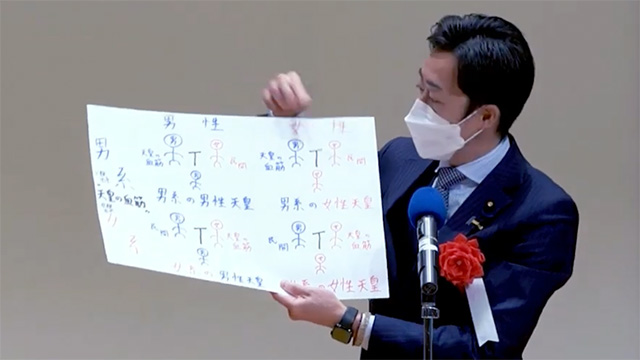 男性 女性
男系
天皇の血筋 男 女 民間
天皇の血筋 男 女 民間
男
女
天皇の血筋
男系の男性天皇 男系の女性天皇
女系
民間 男 女 天皇の血筋
民間 男 女 天皇の血筋
男
女
女系の男性天皇 女系の女性天皇